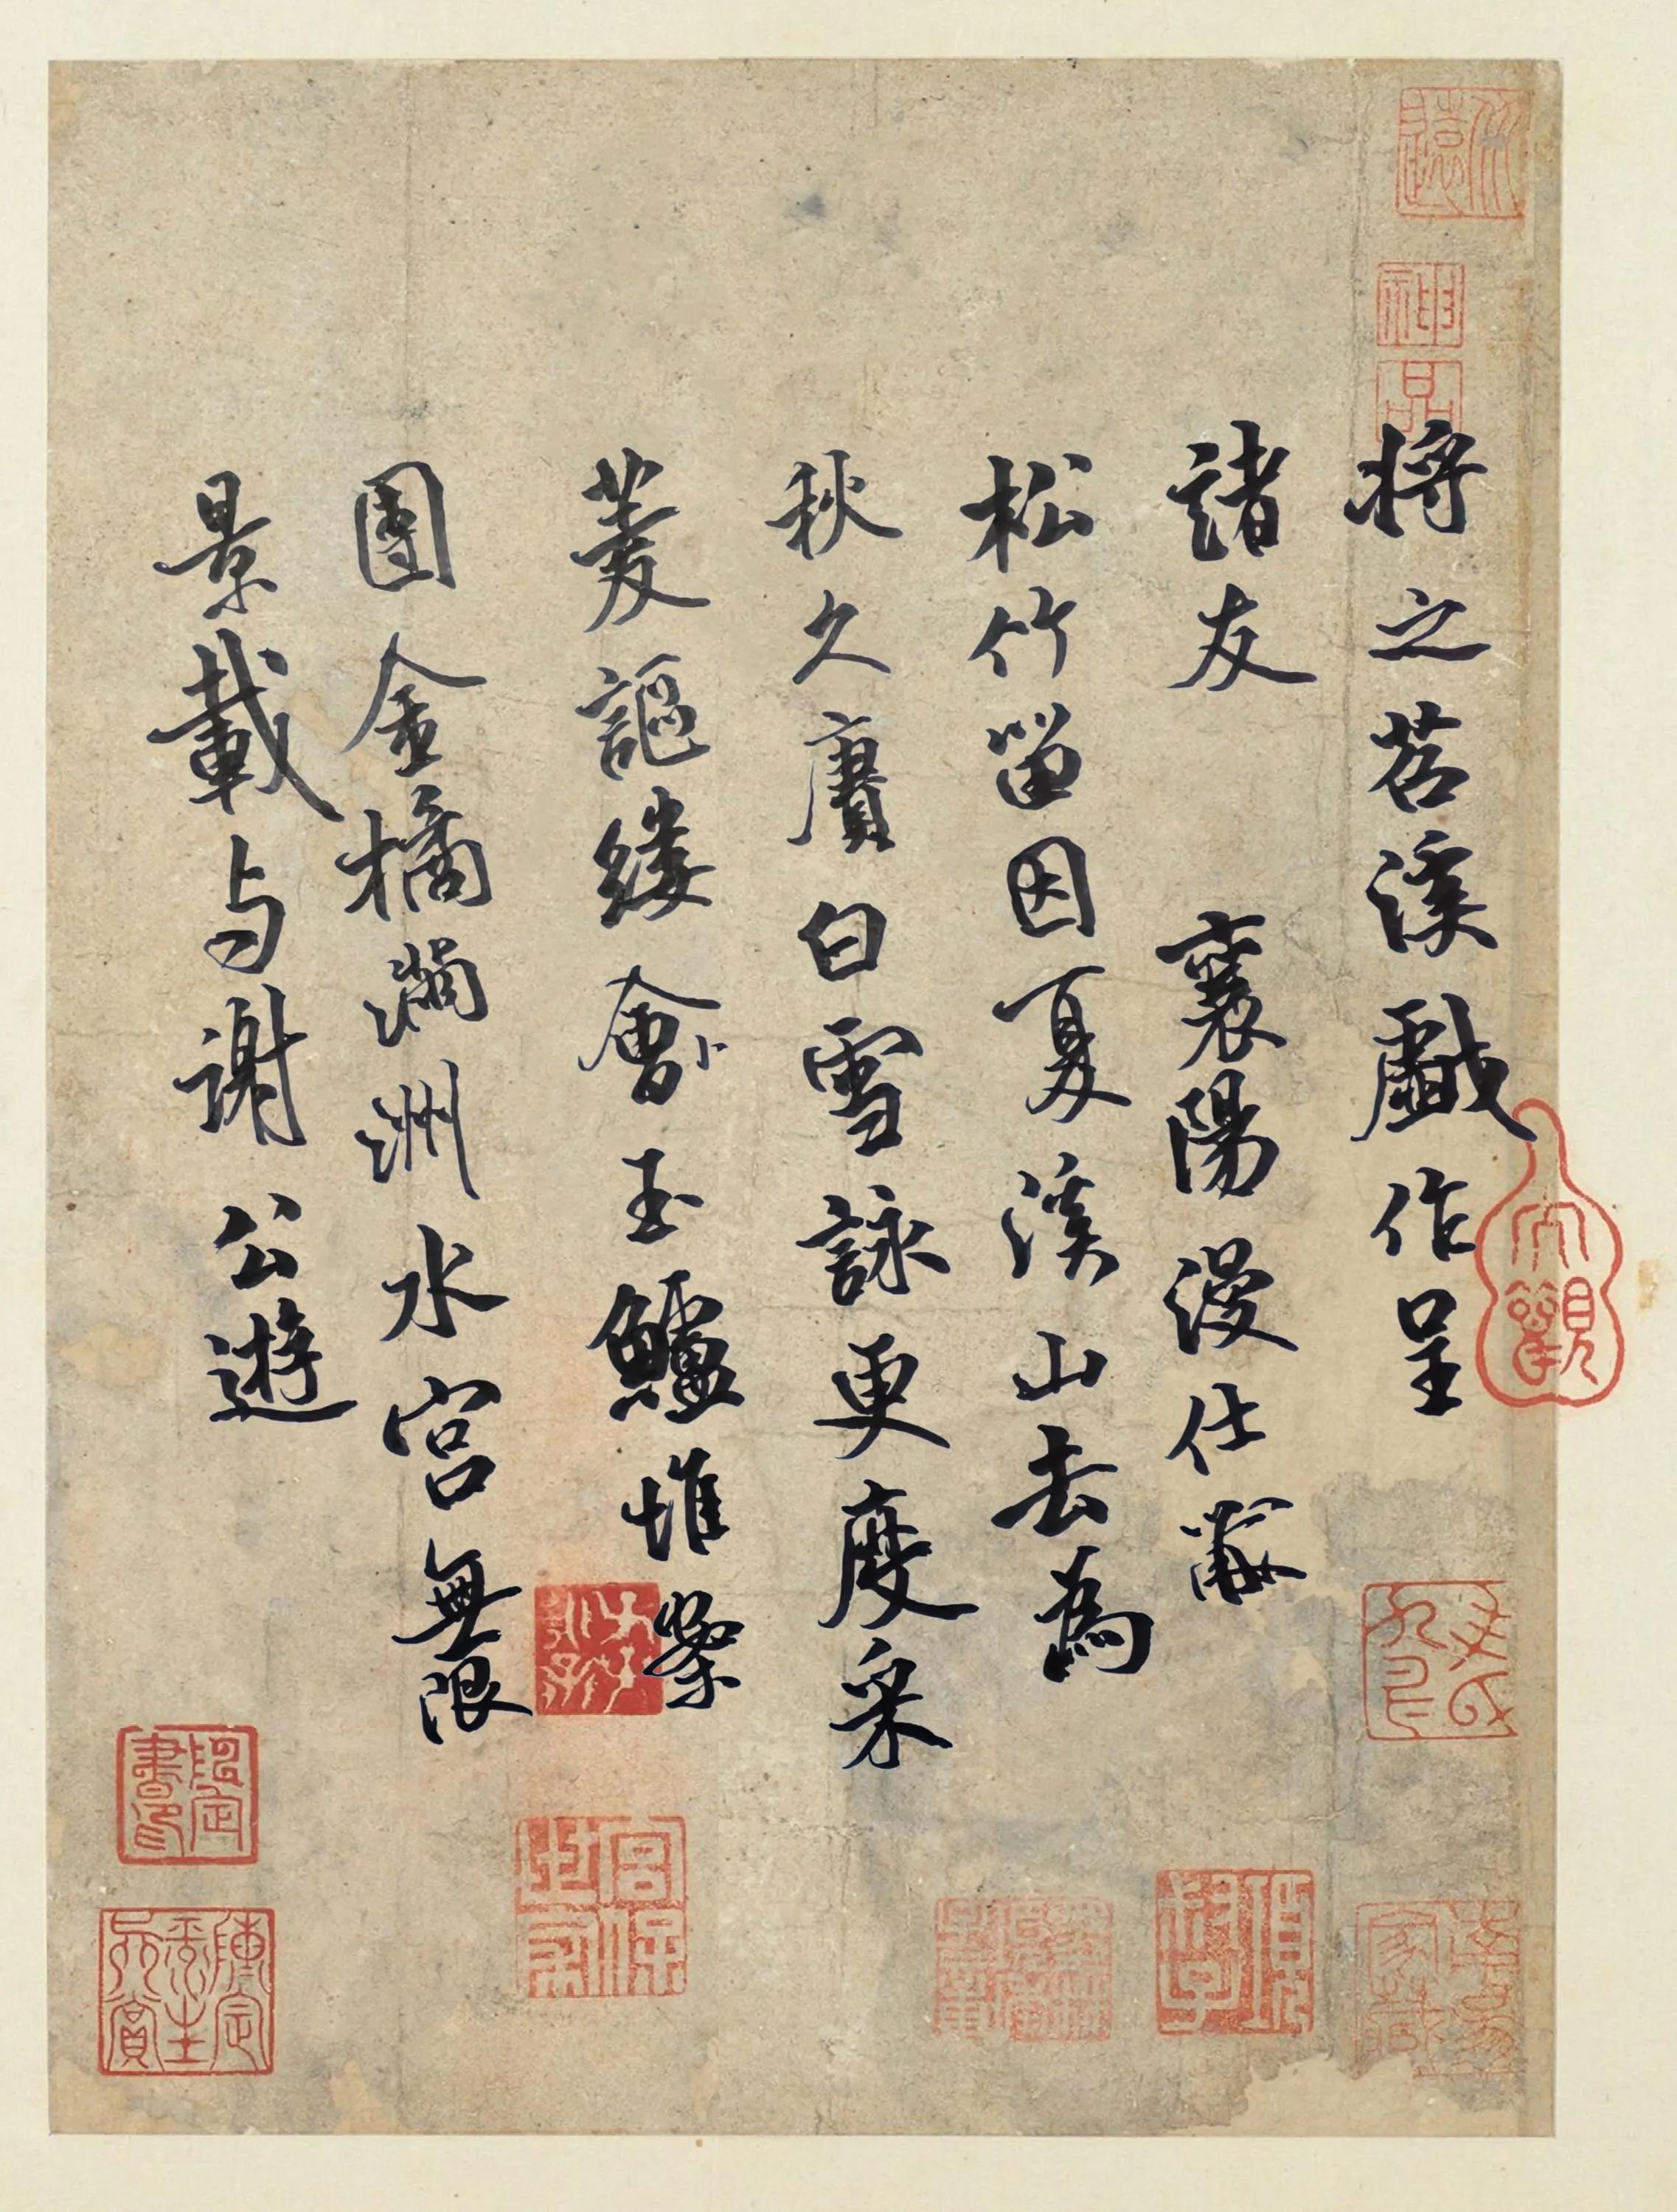 神品
將之苕溪戲作呈
諸友 襄陽漫仕黻
松竹留因夏溪山去為
秋久賡白雪詠更度采
菱謳縷會玉鱸堆案
團金橘滿洲水宮無限
景載与謝公遊
宮保世家